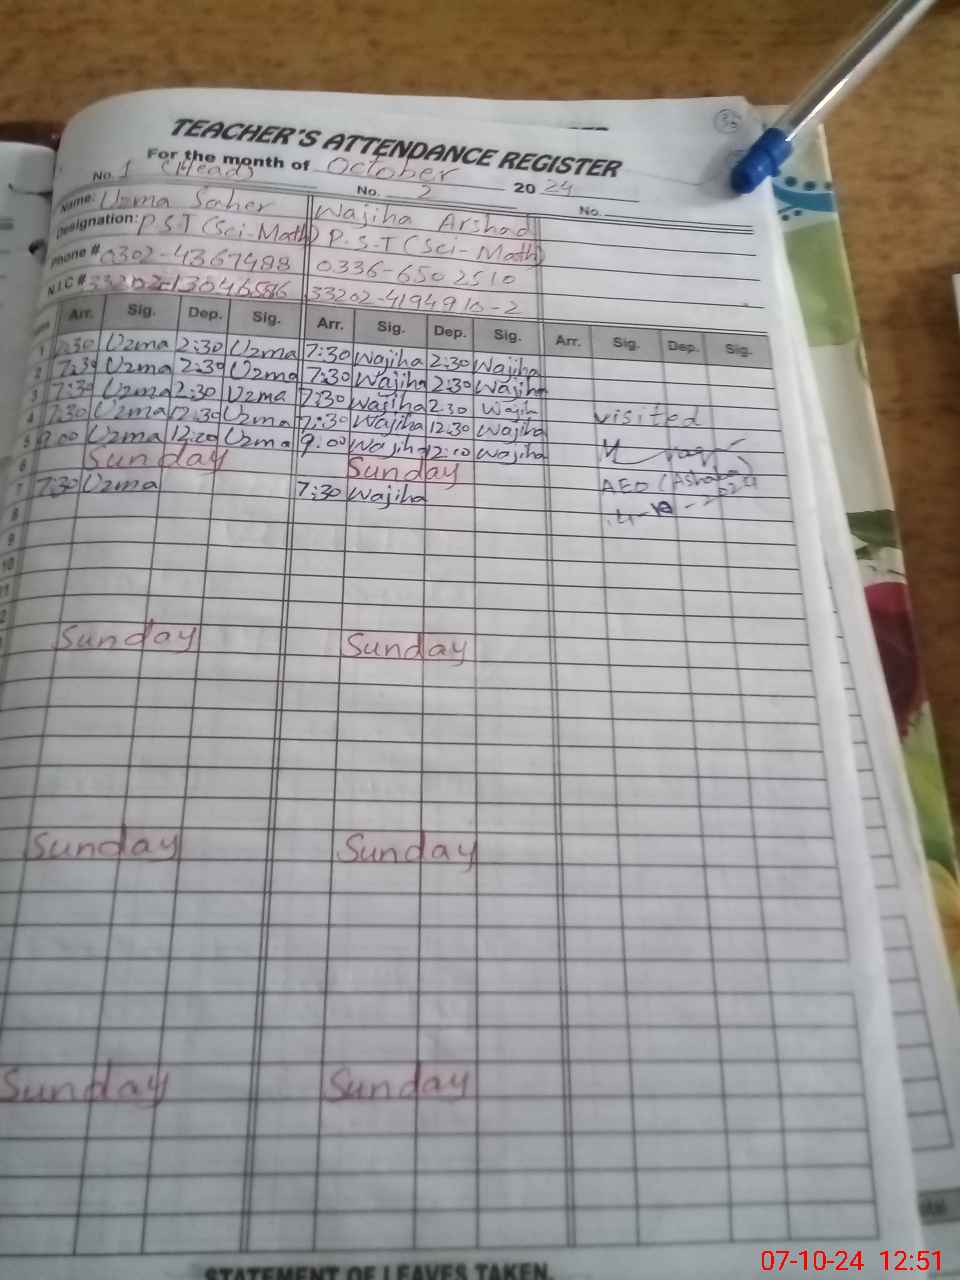 TEACHER'S ATTENDANCE REGISTER
For the month of October 2024
No. 1 (Head) No. 2 No.
Name: Uzma Saher Wajiha Arshad
Designation: P.S.T (Sci-Math) P.S.T (Sci-Math)
Phone # 0302-4367488 0336-6502510
N.I.C # 33202-4194910-2
Arr. Sig. Dep. Sig. Arr. Sig. Dep. Sig. Arr. Sig. Dep. Sig.
1 7:30 Uzma 2:30 Uzma 7:30 Wajiha 2:30 Wajiha
2 7:30 Uzma 2:30 Uzma 7:30 Wajiha 2:30 Wajiha
3 7:30 Uzma 2:30 Uzma 7:30 Wajiha 2:30 Wajiha
4 7:30 Uzma 12:30 Uzma 7:30 Wajiha 12:30 Wajiha visited
5 9.00 Uzma 12:10 Uzma 9.00 Wajiha 12:10 Wajiha
6 Sunday Sunday
7 7:30 Uzma 7:30 Wajiha AEO
8
9
10
11
Sunday Sunday
Sunday Sunday
Sunday Sunday
STATEMENT OF LEAVES TAKEN.
07-10-24 12:51